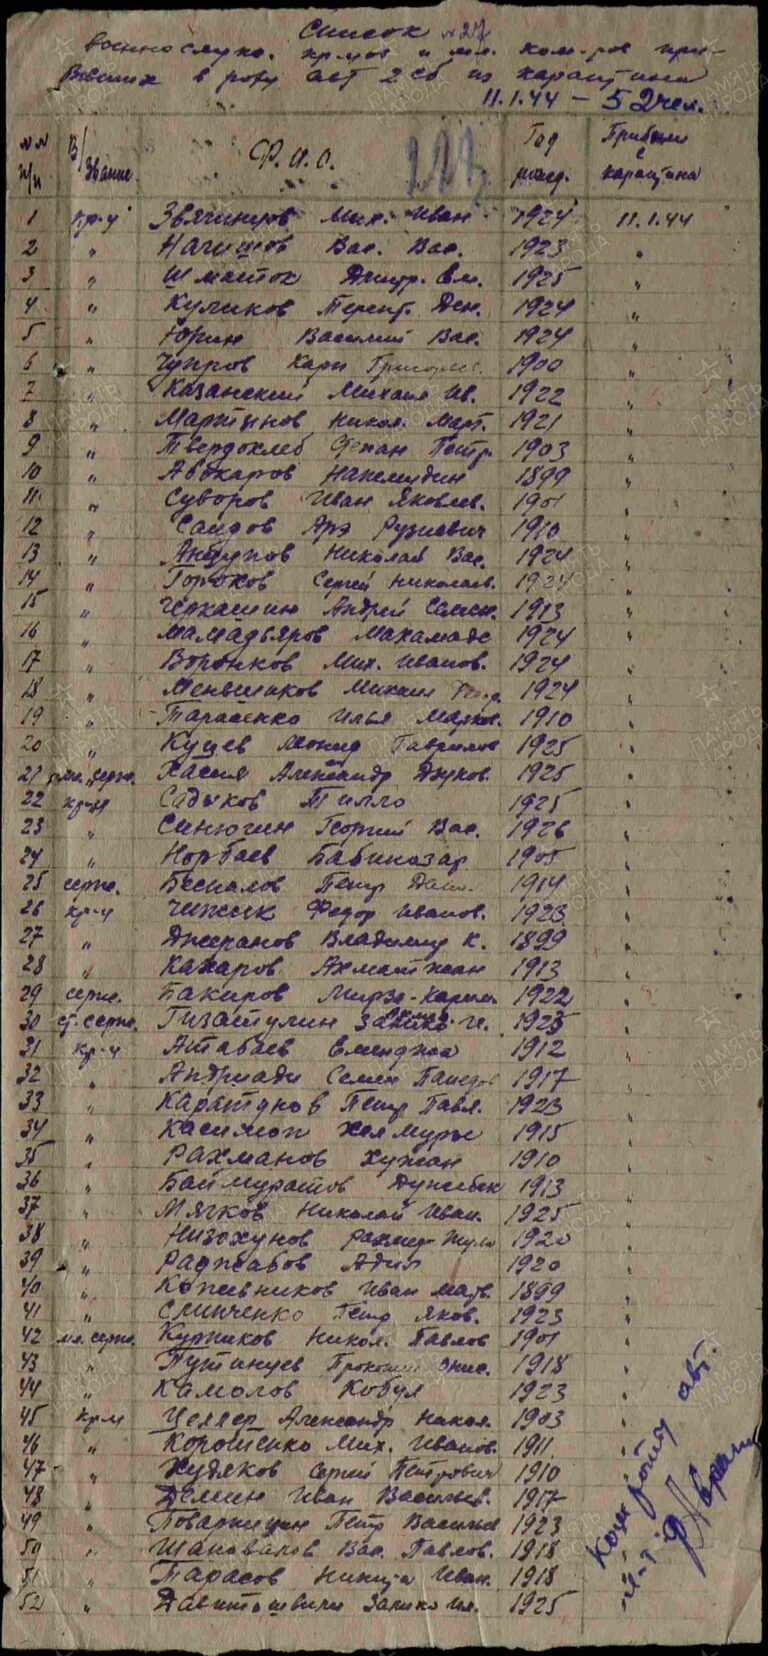 Список №27
военнослуж. кр-цов и мл. ком-ров при-
бывших в роту авт 2 сб из карантина
11.1.44 – 52 чел.
№№ п/п В/Звание Ф.И.О. Год рожд. Прибыли с карантина
1 кр-ц Звягинцов Мих. Иван 1924 11.1.44
2 " Нагишов Вас. Вас. 1923 "
3 " Шматок Дмитр. Ем. 1925 "
4 " Куликов Терент. Ден. 1924 "
5 " Юрин Василий Вас. 1924 "
6 " Чупров Харн 1900 "
7 " Казанский Михаил Ив. 1922 "
8 " Мартынов Никол. Март. 1921 "
9 " Твердохлеб Степан Петр. 1903 "
10 " Абакаров 1899 "
11 " Суворов Иван Яковлев. 1901 "
12 " Саидов Арэ Рузиевич 1910 "
13 " Анцупов Николай Вас. 1924 "
14 " Горохов Сергей Николаев. 1924 "
15 " Черкашин Андрей Семен. 1913 "
16 " Мамадьяров Махамаде 1924 "
17 " Воронков Мих. Иванов. 1924 "
18 " Меньшиков Михаил 1924 "
19 " Тарасенко Илья Марков. 1910 "
20 " Куцев Леонид Гаврилов 1925 "
21 мл. серж. Хасия Александр 1925 "
22 кр-ц Садыков Тилло 1925 "
23 " Синюгин Георгий Вас. 1926 "
24 " Норбаев Бабиназар 1905 "
25 серж. Беспалов Петр 1914 "
26 кр-ц Чижик Федор Иванов. 1923 "
27 " Джеранов Владимир К. 1899 "
28 " Кахаров Ахматжан 1913 "
29 серж. Бакиров Мирза-Карим 1922 "
30 ст. серж. Гизатулин 1925 "
31 кр-ц Атабаев 1912 "
32 " Андриади Семен 1917 "
33 " Каратунов Петр Павл. 1923 "
34 " Касимов 1915 "
35 " Рахманов Хужан 1910 "
36 " Баймуратов 1913 "
37 " Мягков Николай Иван. 1925 "
38 " Низохунов 1920 "
39 " Раджабов Адил 1920 "
40 " Кожевников Иван Матв. 1899 "
41 " Слинченко Петр Яков. 1923 "
42 мл. серж. Курников Никол. Павлов 1901 "
43 " Путинцев Прокопий Онис. 1918 "
44 " Камолов Кобул 1923 "
45 кр-ц Целлер Александр Никол. 1903 "
46 " Корошенко Мих. Иванов. 1911 "
47 " Худяков Сергей Петрович 1910 "
48 " Демин Иван Васильев. 1917 "
49 " Поварницин Петр Васильев 1923 "
50 " Шаповалов Вас. Павлов. 1918 "
51 " Тарасов Никита Иван. 1918 "
52 " Давиташвили Залико Ил. 1925
Ком роты авт.
л-т
ПАМЯТЬ НАРОДА